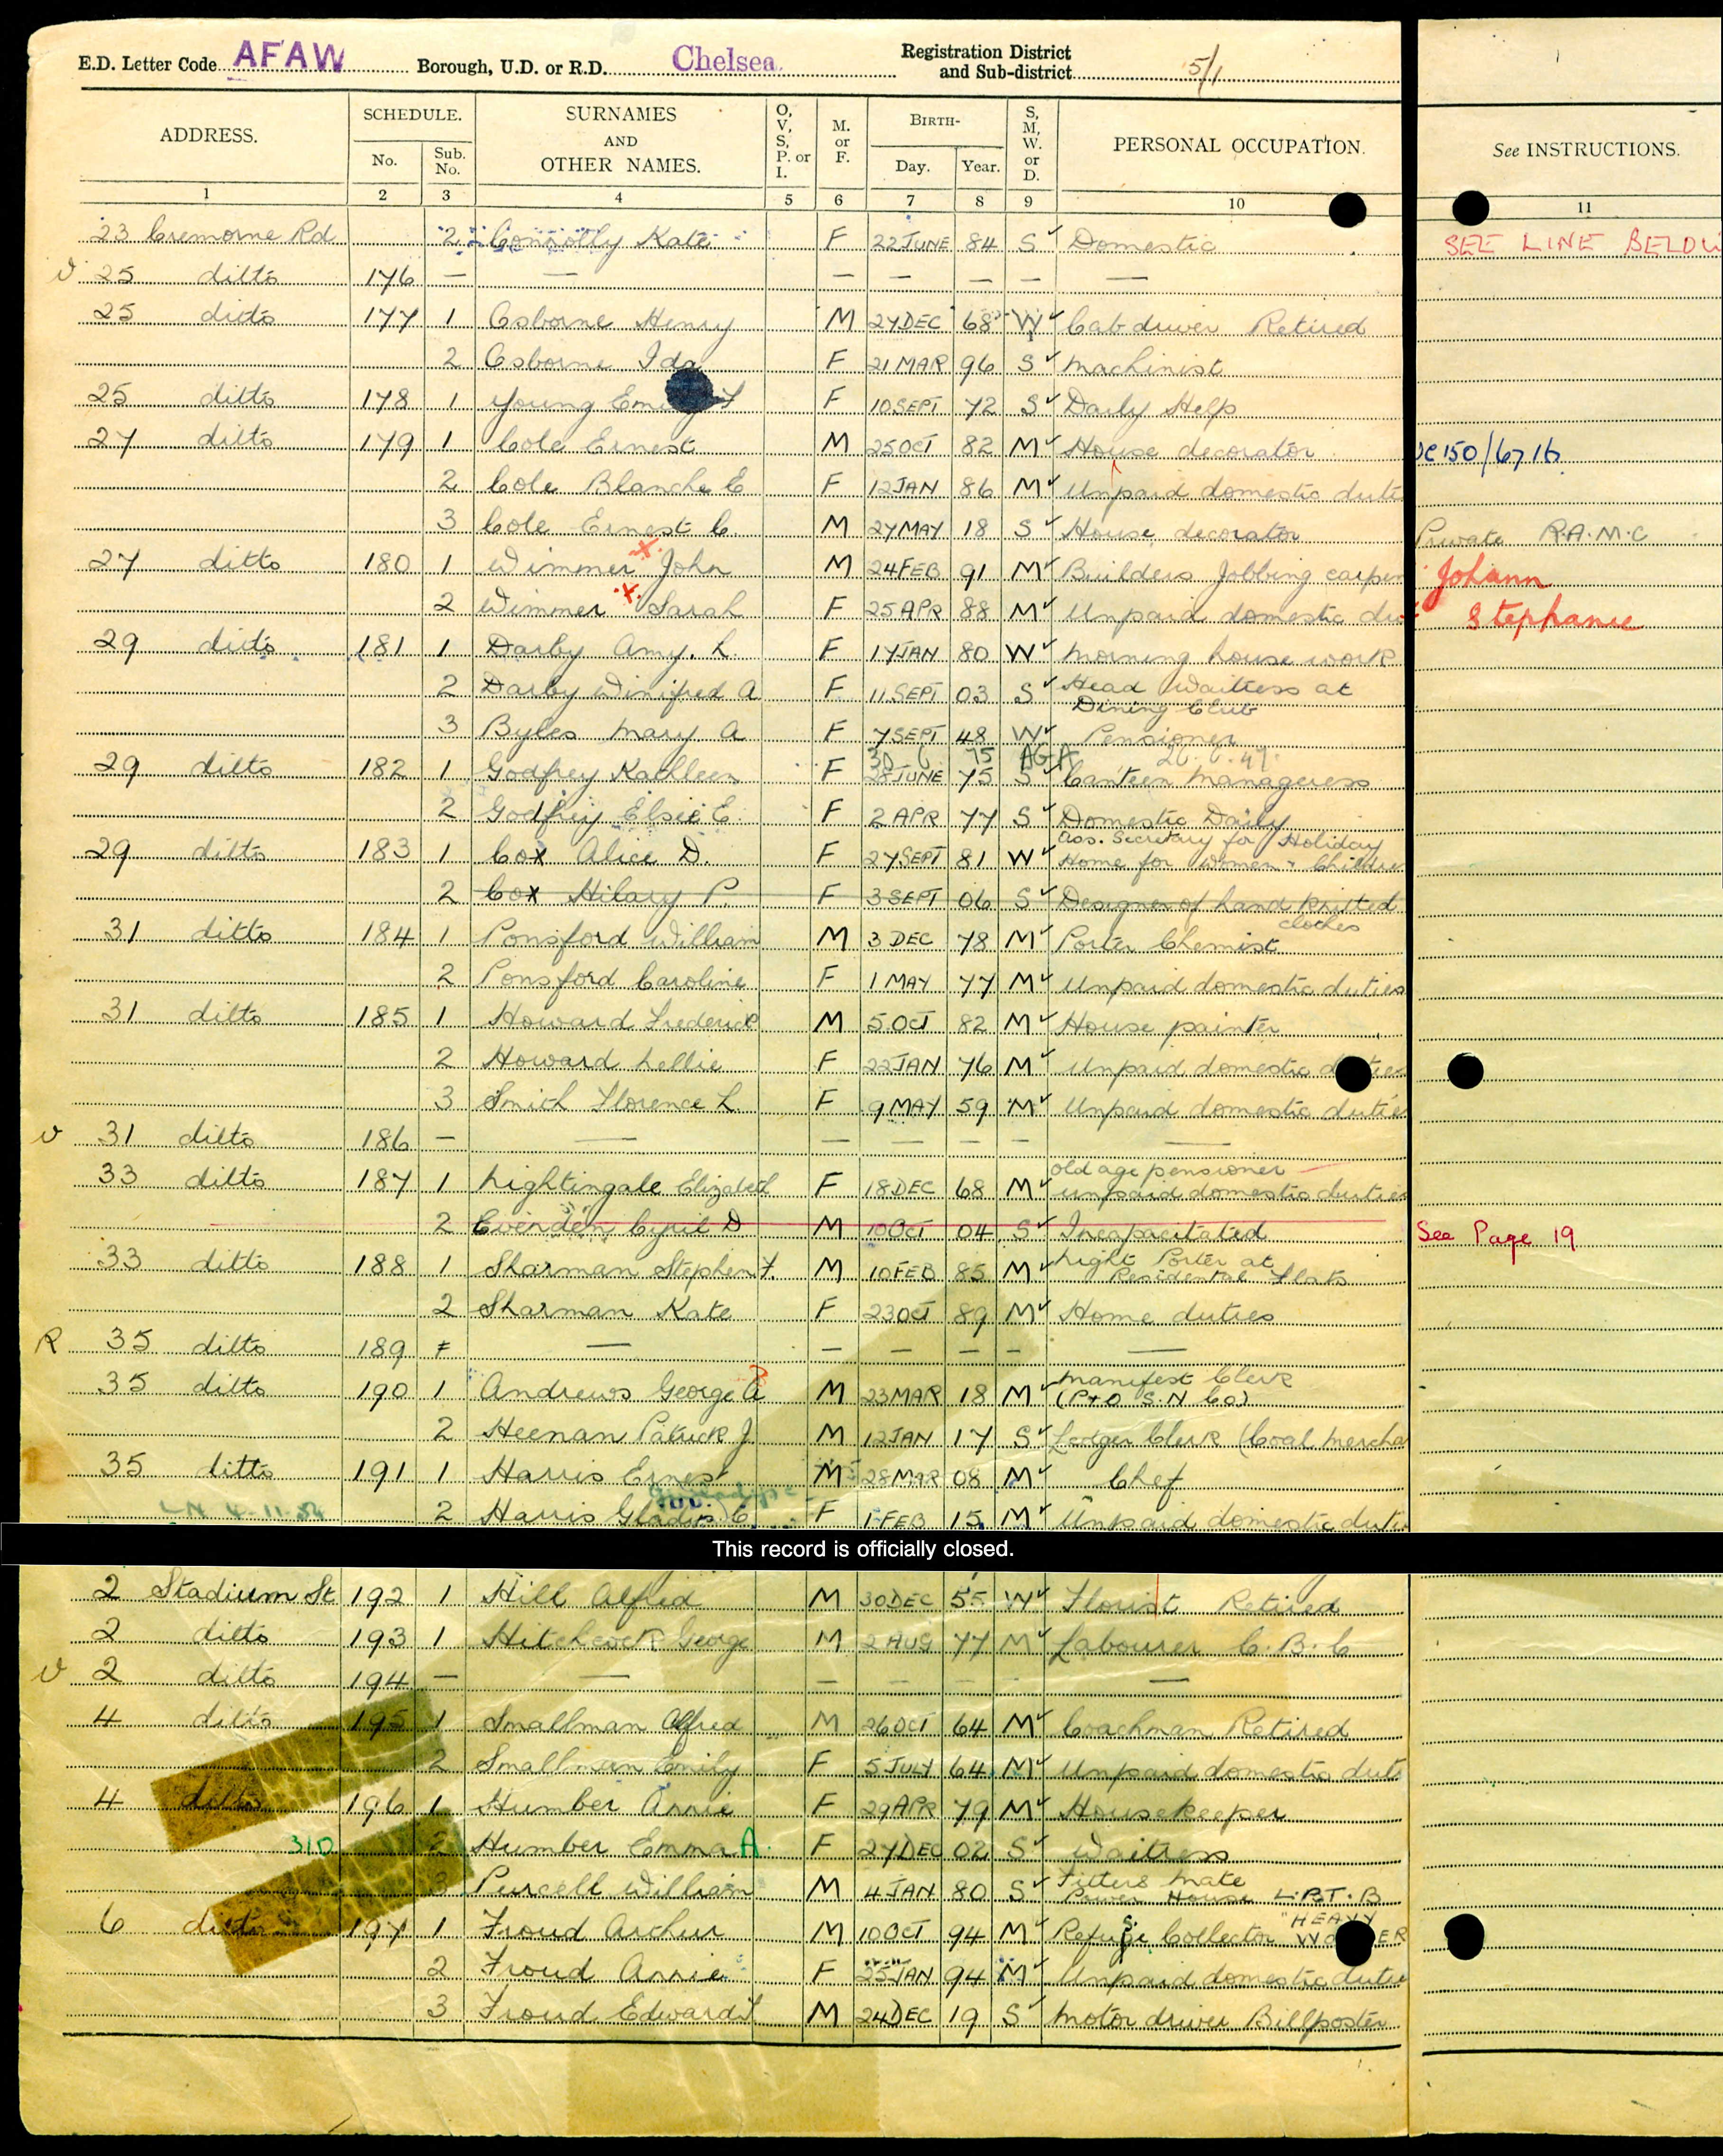 E.D. Letter Code AFAW Borough, U.D. or R.D. Chelsea Registration District and Sub-district 5/1
ADDRESS. SCHEDULE. No. Sub. No. SURNAMES AND OTHER NAMES. O, V, S, P. or I. M. or F. BIRTH- Day. Year. S, M, W. or D. PERSONAL OCCUPATION. See INSTRUCTIONS.
1 2 3 4 5 6 7 8 9 10 11
23 Cremorne Rd 2 Connolly Kate F 22 JUNE 84 S Domestic SEE LINE BELOW
V 25 ditto 176 — — — — — — —
25 ditto 177 1 Osborne Henry M 27 DEC 68 W Cab driver Retired
2 Osborne Ida F 21 MAR 96 S Machinist
25 ditto 178 1 Young F F 10 SEPT 72 S Daily Help
27 ditto 179 1 Cole Ernest M 25 OCT 82 M House decorator 150/6716
2 Cole Blanche E F 12 JAN 86 M Unpaid domestic duti
3 Cole Ernest C. M 27 MAY 18 S House decorator Private R.A.M.C
27 ditto 180 1 Wimmer x John M 24 FEB 91 M Builders Jobbing carpen Johann
2 Wimmer x Sarah F 25 APR 88 M Unpaid domestic du Stephanie
29 ditto 181 1 Darby Amy. L. F 17 JAN 80 W Morning house work
2 Darby Winifred A F 11 SEPT 03 S Head Waitress at Dining Club
3 Byles Mary A F 7 SEPT 48 W Pensioner
30 6 75 AGA 26.6.47.
29 ditto 182 1 Godfrey Kathleen F 28 JUNE 75 S Canteen Manageress
2 Godfrey Elsie E. F 2 APR 77 S Domestic Daily
29 ditto 183 1 Cox Alice D. F 27 SEPT 81 W Ass. Secretary for Holiday Home for Women & Childre
2 Cox Hilary P. F 3 SEPT 06 S Designer of hand knitted clothes
31 ditto 184 1 Ponsford William M 3 DEC 78 M Porter Chemist
2 Ponsford Caroline F 1 MAY 77 M Unpaid domestic duties
31 ditto 185 1 Howard Frederick M 5 OCT 82 M House painter
2 Howard Nellie F 22 JAN 76 M Unpaid domestic duties
3 Smith Florence L F 9 MAY 59 M Unpaid domestic duties
V 31 ditto 186 — — — — — — —
33 ditto 187 1 Nightingale Elizabeth F 18 DEC 68 M old age pensioner unpaid domestic duties
2 Evenden Cyril D M 10 OCT 04 S Incapacitated See Page 19
33 ditto 188 1 Sharman Stephen F. M 10 FEB 85 M Night Porter at Residental Flats
2 Sharman Kate F 23 OCT 89 M Home duties
R 35 ditto 189 — — — — — —
35 ditto 190 1 Andrews George A M 23 MAR 18 M Manifest Clerk (P+O S.N Co)
2 Heenan Patrick J M 12 JAN 17 S Ledger Clerk (Coal Mercha
35 ditto 191 1 Harris Ernest M 28 MAR 08 M Chef
LN 4.11.54 2 Harris Gladys C F 1 FEB 15 M Unpaid domestic duti
This record is officially closed.
2 Stadium St 192 1 Hill Alfred M 30 DEC 55 W Florist Retired
2 ditto 193 1 Hitchcock George M 2 AUG 77 M Labourer C.B.C
V 2 ditto 194 — — — — — — —
4 ditto 195 1 Smallman Alfred M 26 OCT 64 M Coachman Retired
2 Smallman Emily F 5 JULY 64 M Unpaid domestic duti
4 ditto 196 1 Humber Annie F 29 APR 79 M Housekeeper
31D 2 Humber Emma A. F 27 DEC 02 S Waitress
3 Purcell William M 4 JAN 80 S Fitters Mate Power House L.P.T.B
6 ditto 197 1 Froud Arthur M 10 OCT 94 M Refuse Collector "HEAVY WORKER
2 Froud Annie F 25 JAN 94 M Unpaid domestic dutie
3 Froud Edward M 24 DEC 19 S Motor driver Billposter